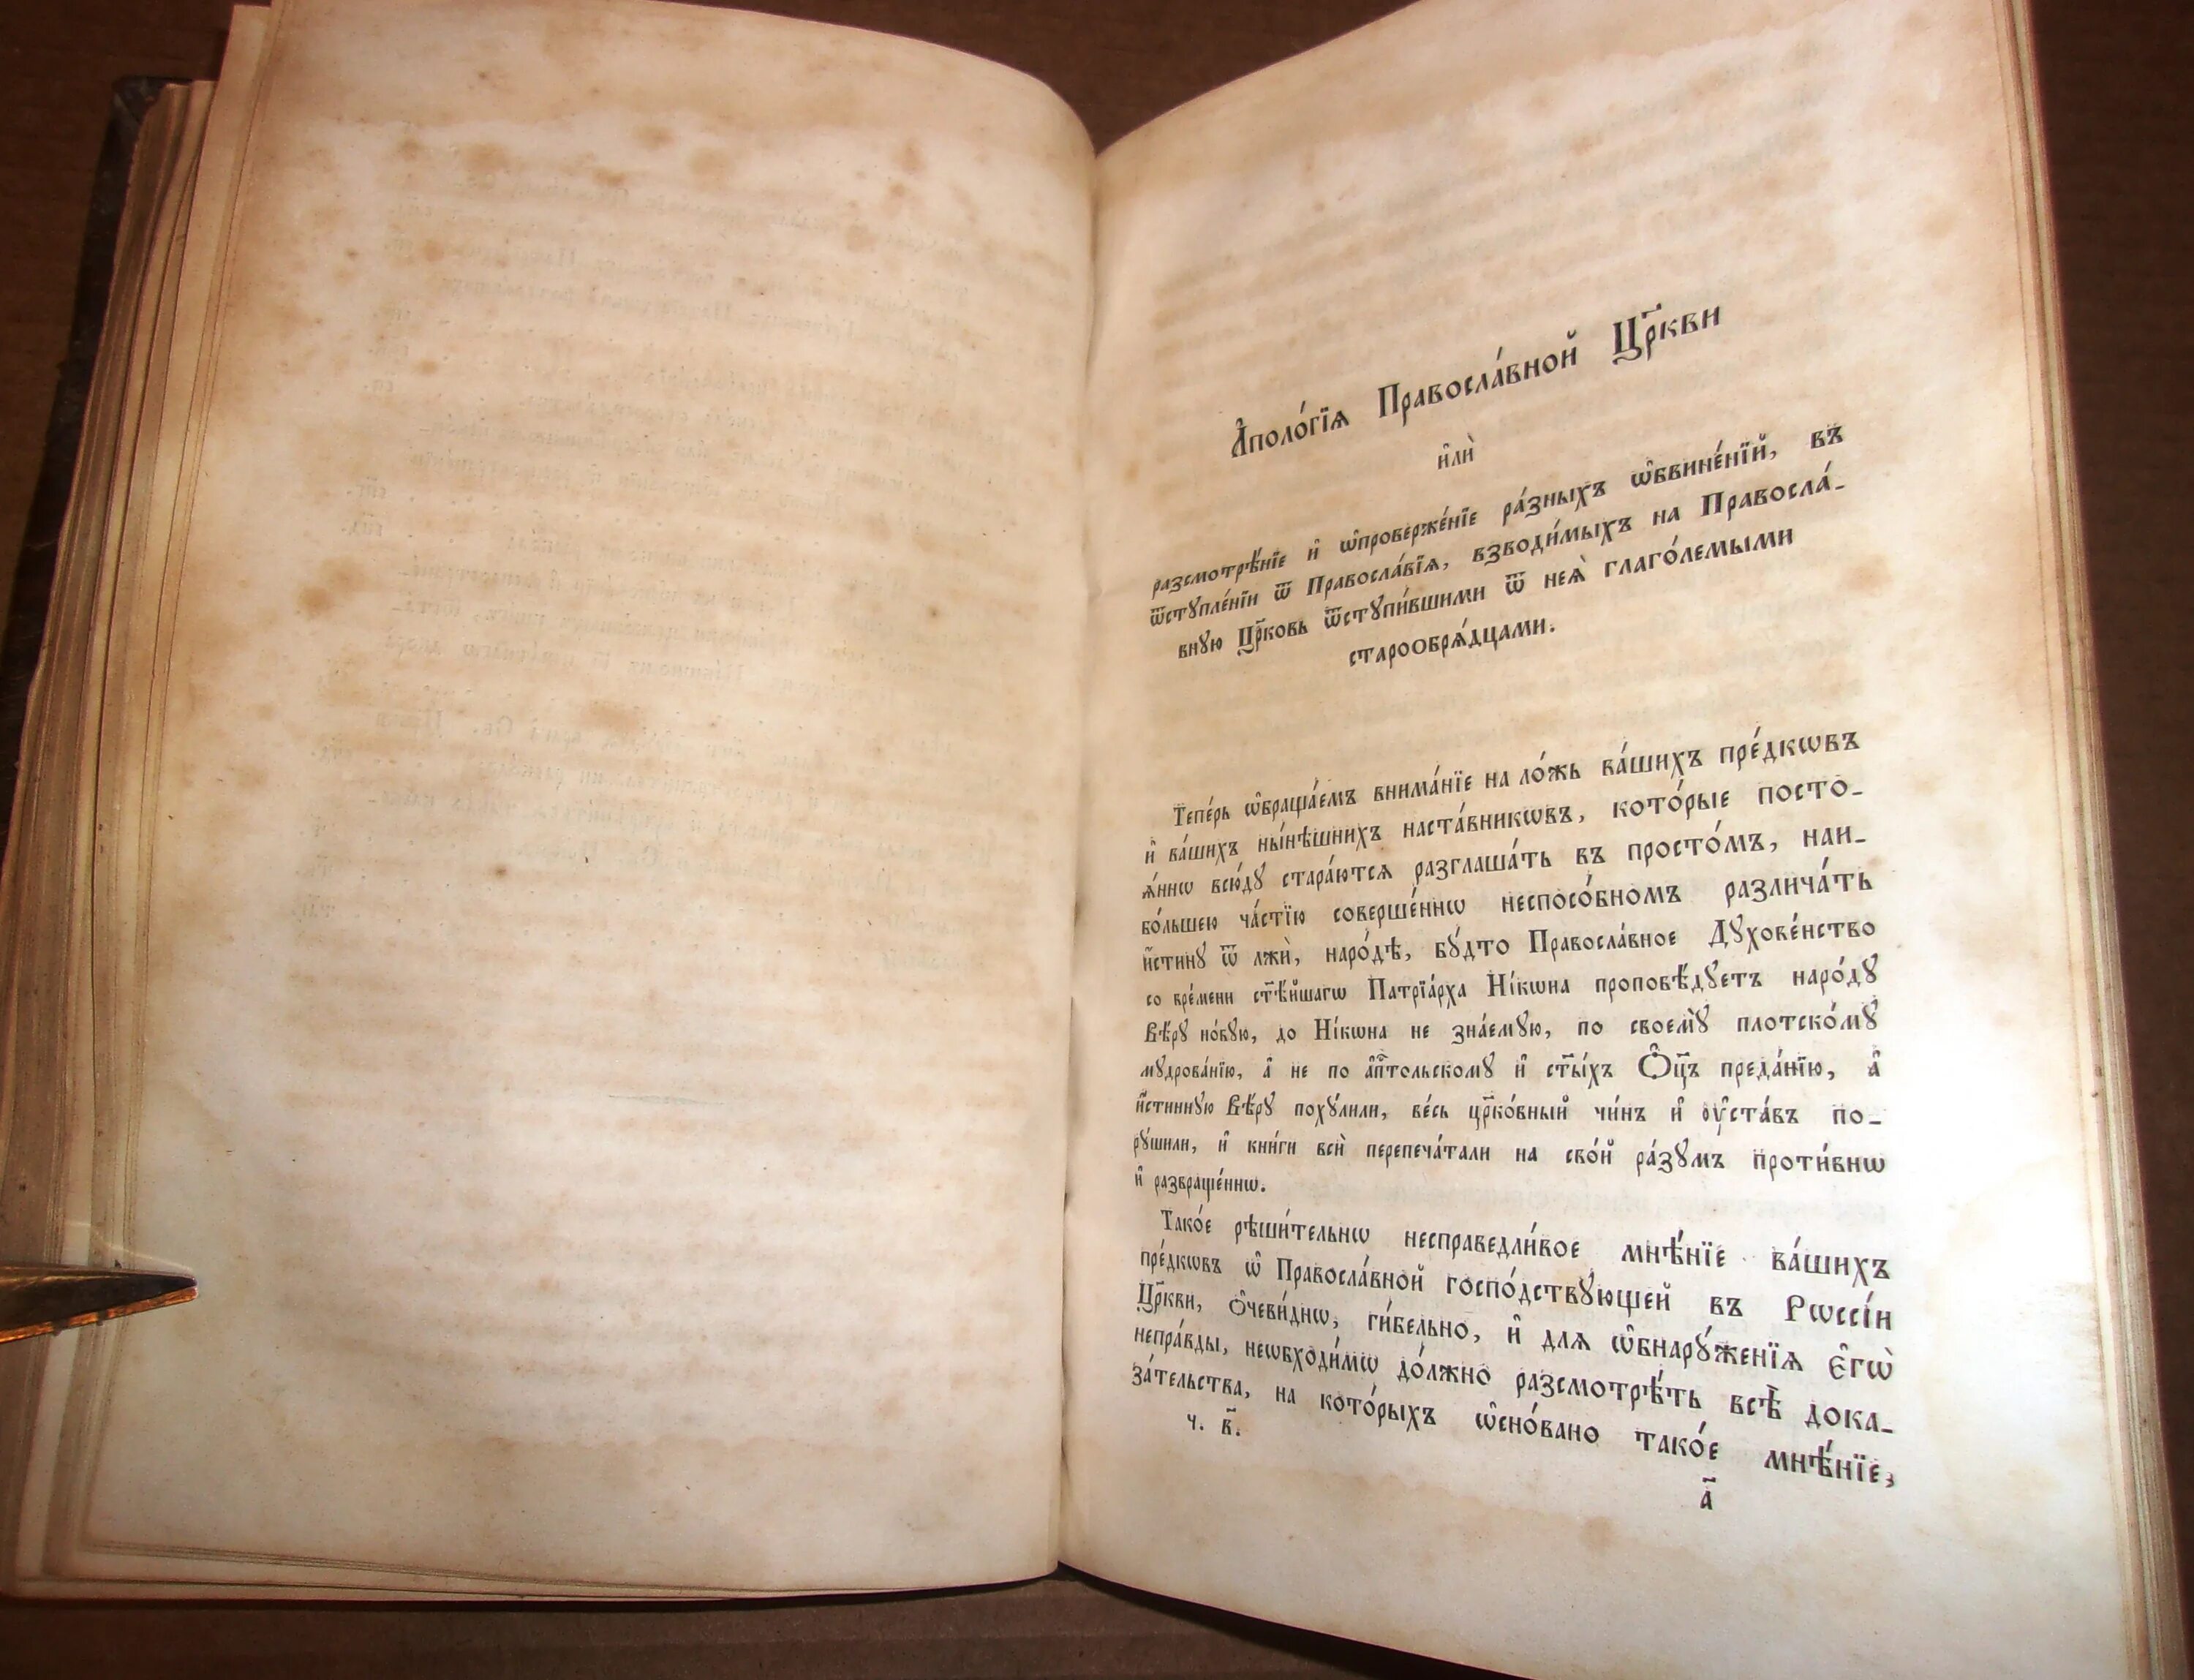 А҆поло́гїѧ Правосла́вной Цр҃кви
и҆лѝ
разсмотрѣ́нїе и҆ ѡ҆проверже́нїе ра́зныхъ ѡ҆бвине́нїй, въ
ѿстꙋпле́нїи ѿ Правосла́вїѧ, взводи́мыхъ на Правосла́-
внꙋю Цр҃ковь ѿстꙋпи́вшими ѿ неѧ̀ глаго́лемыми
старообрѧ́дцами.
Тепе́рь ѡ҆браща́емъ внима́нїе на ло́жь ва́шихъ пре́дкѡвъ
и҆ ва́шихъ ны́нѣшнихъ наста́вникѡвъ, кото́рые посто-
ѧ́ннѡ всю́дꙋ стара́ютсѧ разглаша́ть въ просто́мъ, наи-
бо́льшею ча́стїю соверше́ннѡ неспосо́бномъ различа́ть
и҆́стинꙋ ѿ лжѝ, наро́дѣ, бꙋ́дто Правосла́вное Дꙋхове́нство
со вре́мени ст҃ѣ́йшагѡ Патрїа́рха Ні́кѡна проповѣ́дꙋетъ наро́дꙋ
Вѣ́рꙋ но́вꙋю, до Ні́кѡна не зна́емꙋю, по своемꙋ̀ плотско́мꙋ
мꙋдрова́нїю, а҆ не по а҆пⷭ҇тольскомꙋ и҆ ст҃ы́хъ Ѻ҆ц҃ъ преда́нїю, а҆
и҆́стиннꙋю Вѣ́рꙋ похꙋ́лили, ве́сь цр҃ко́вный чи́нъ и҆ оу҆ста́въ по-
рꙋ́шили, и҆ кни́ги всѝ перепеча́тали на сво́й ра́зꙋмъ проти́внѡ
и҆ развраще́ннѡ.
Тако́е рѣши́тельнѡ несправедли́вое мнѣ́нїе ва́шихъ
пре́дкѡвъ ѡ҆ Правосла́вной госпо́дствꙋющей въ Рѡссі́и
Цр҃кви, ѻ҆чеви́днѡ, ги́бельно, и҆ для ѡ҆бнарꙋ́женїѧ є҆гѡ̀
непра́вды, неѡбходи́мѡ до́лжно разсмотрѣ́ть всѣ̀ дока-
за́тельства, на кото́рыхъ ѡ҆сно́вано тако́е мнѣ́нїе,
ч. в҃.
а҃